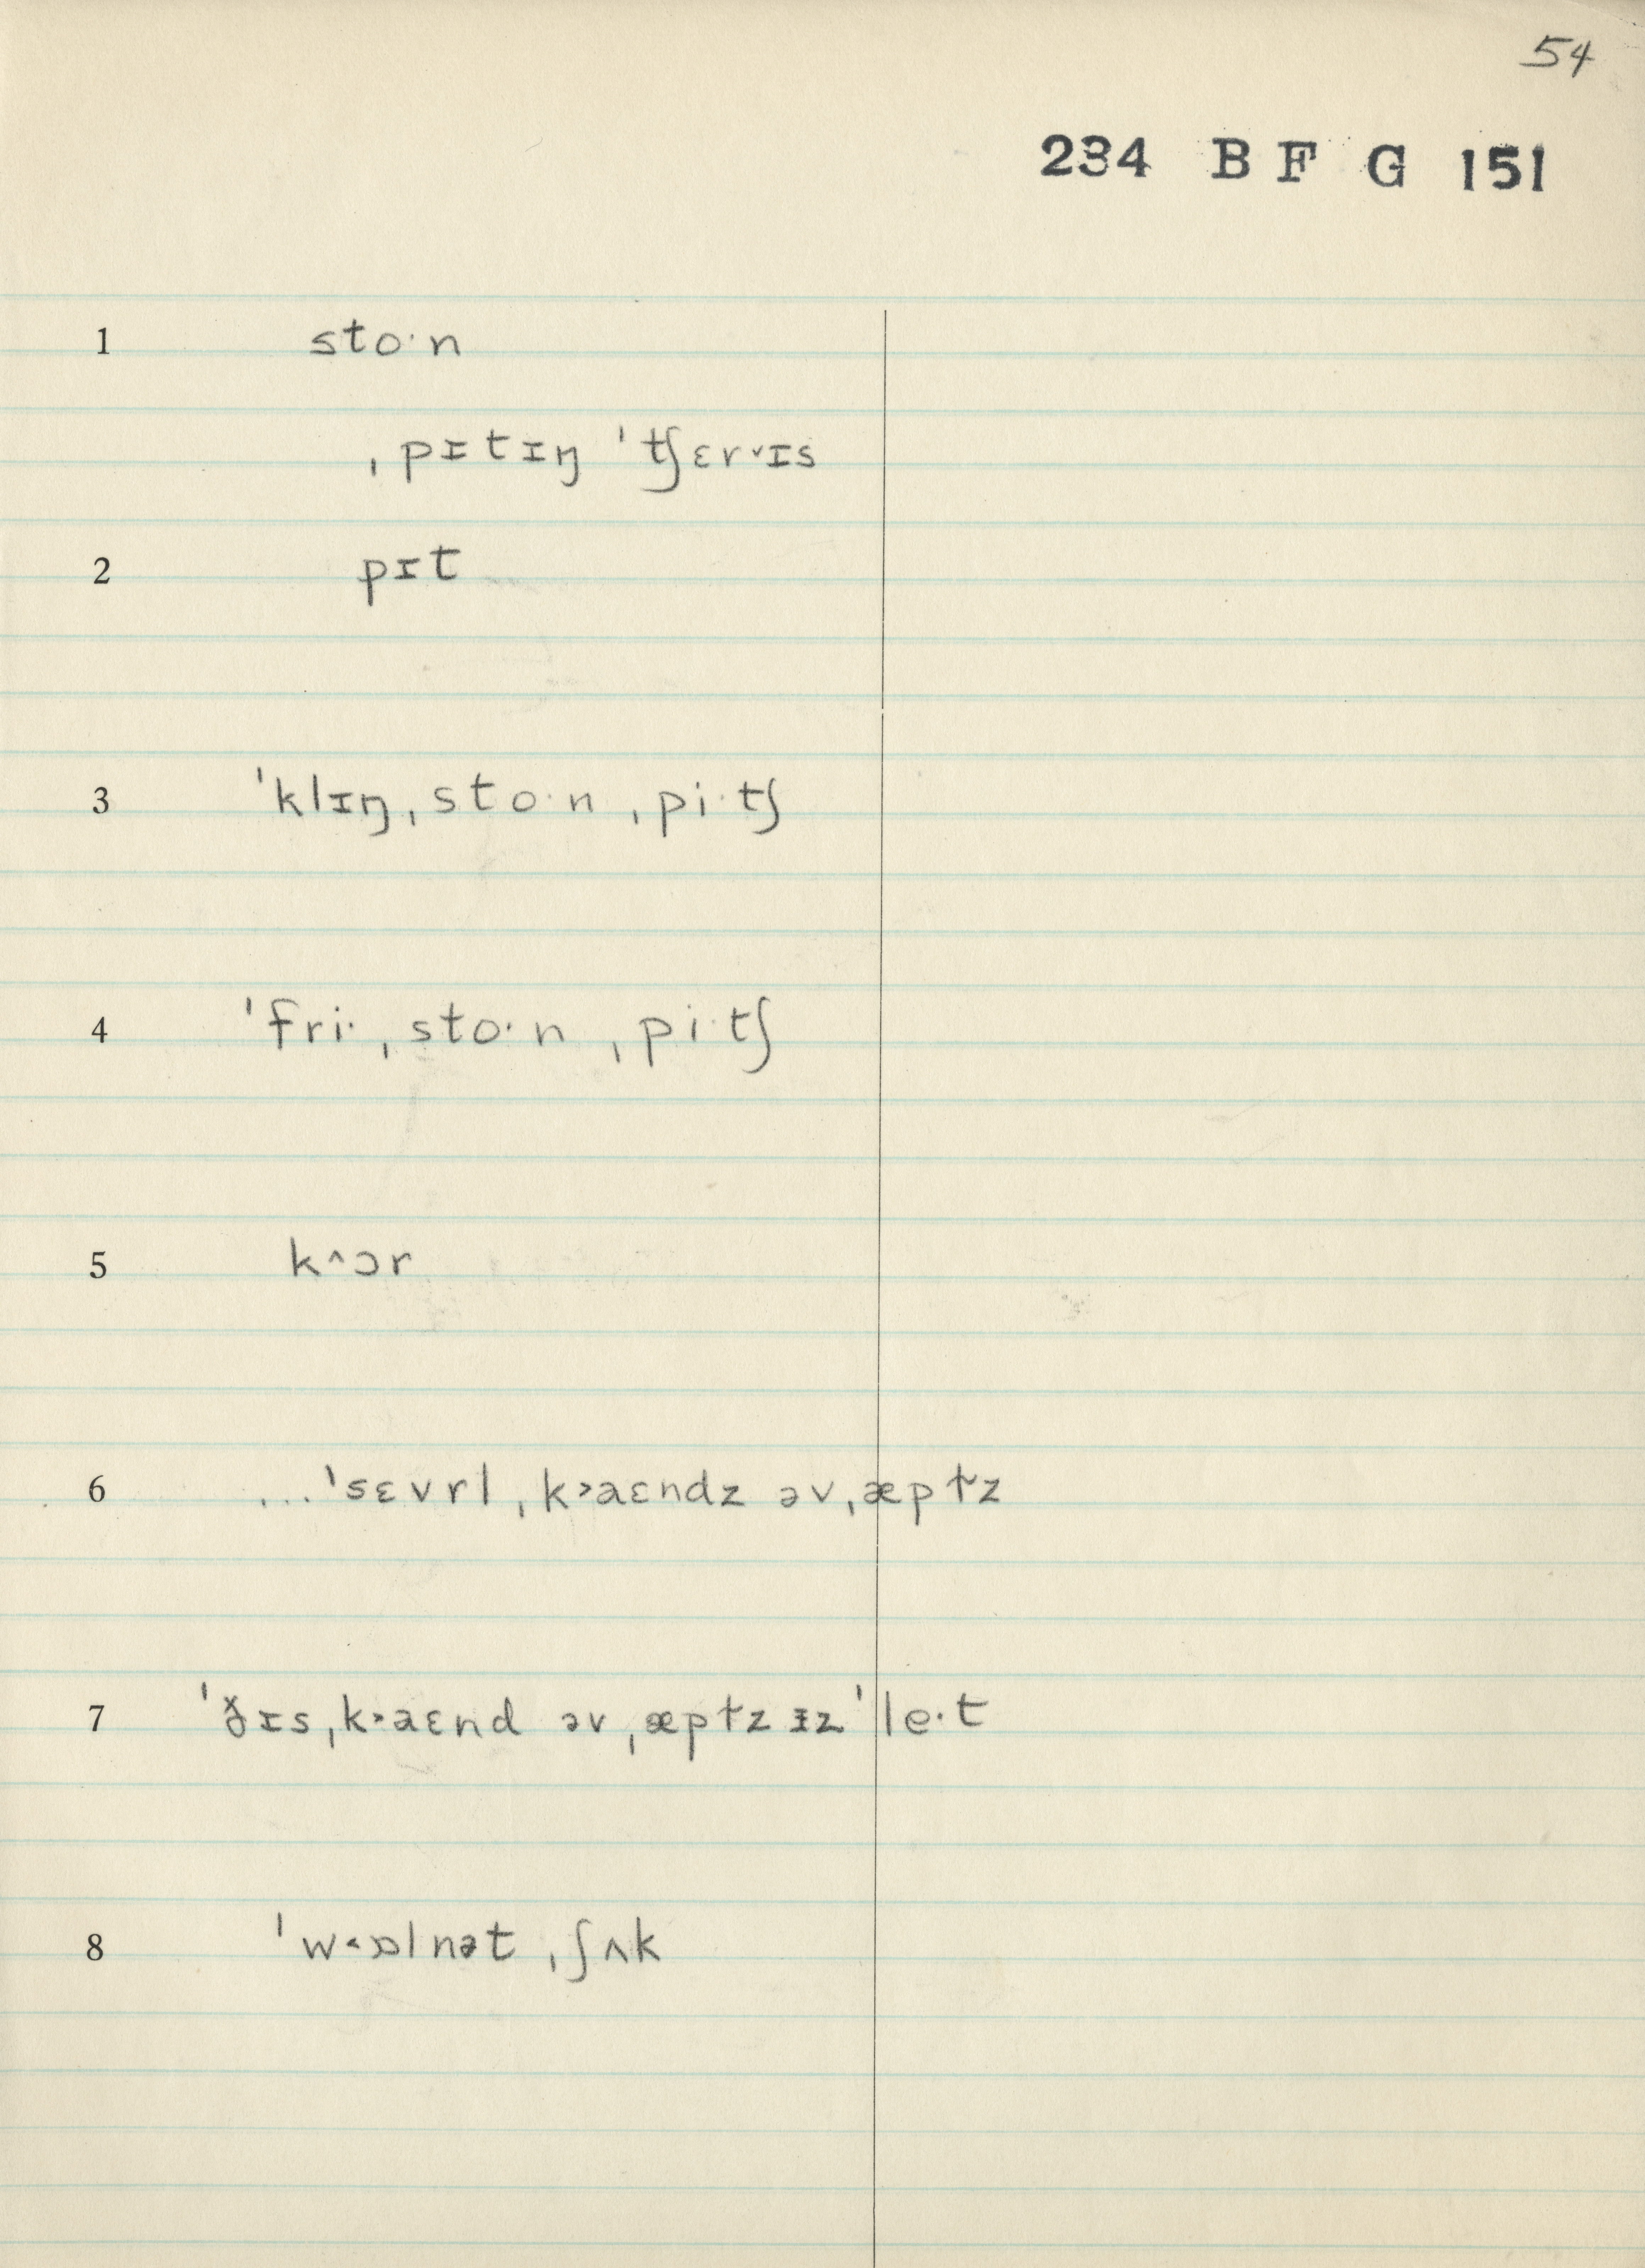 54
234 B F G 151
1 sto·n
ˌpɪtɪŋ ˈtʃɛr˅ɪs
2 pɪt
3 ˈklɪŋˌsto·nˌpi·tʃ
4 ˈfri·ˌsto·nˌpi·tʃ
5 k^ɔr
6 ...ˈsɛvrlˌk˃aɛndz əvˌæpɫz
7 ˈðɪsˌk˃aɛnd əvˌæpɫz ɪz ˈle·t
8 ˈw˂ɒlnətˌʃʌk